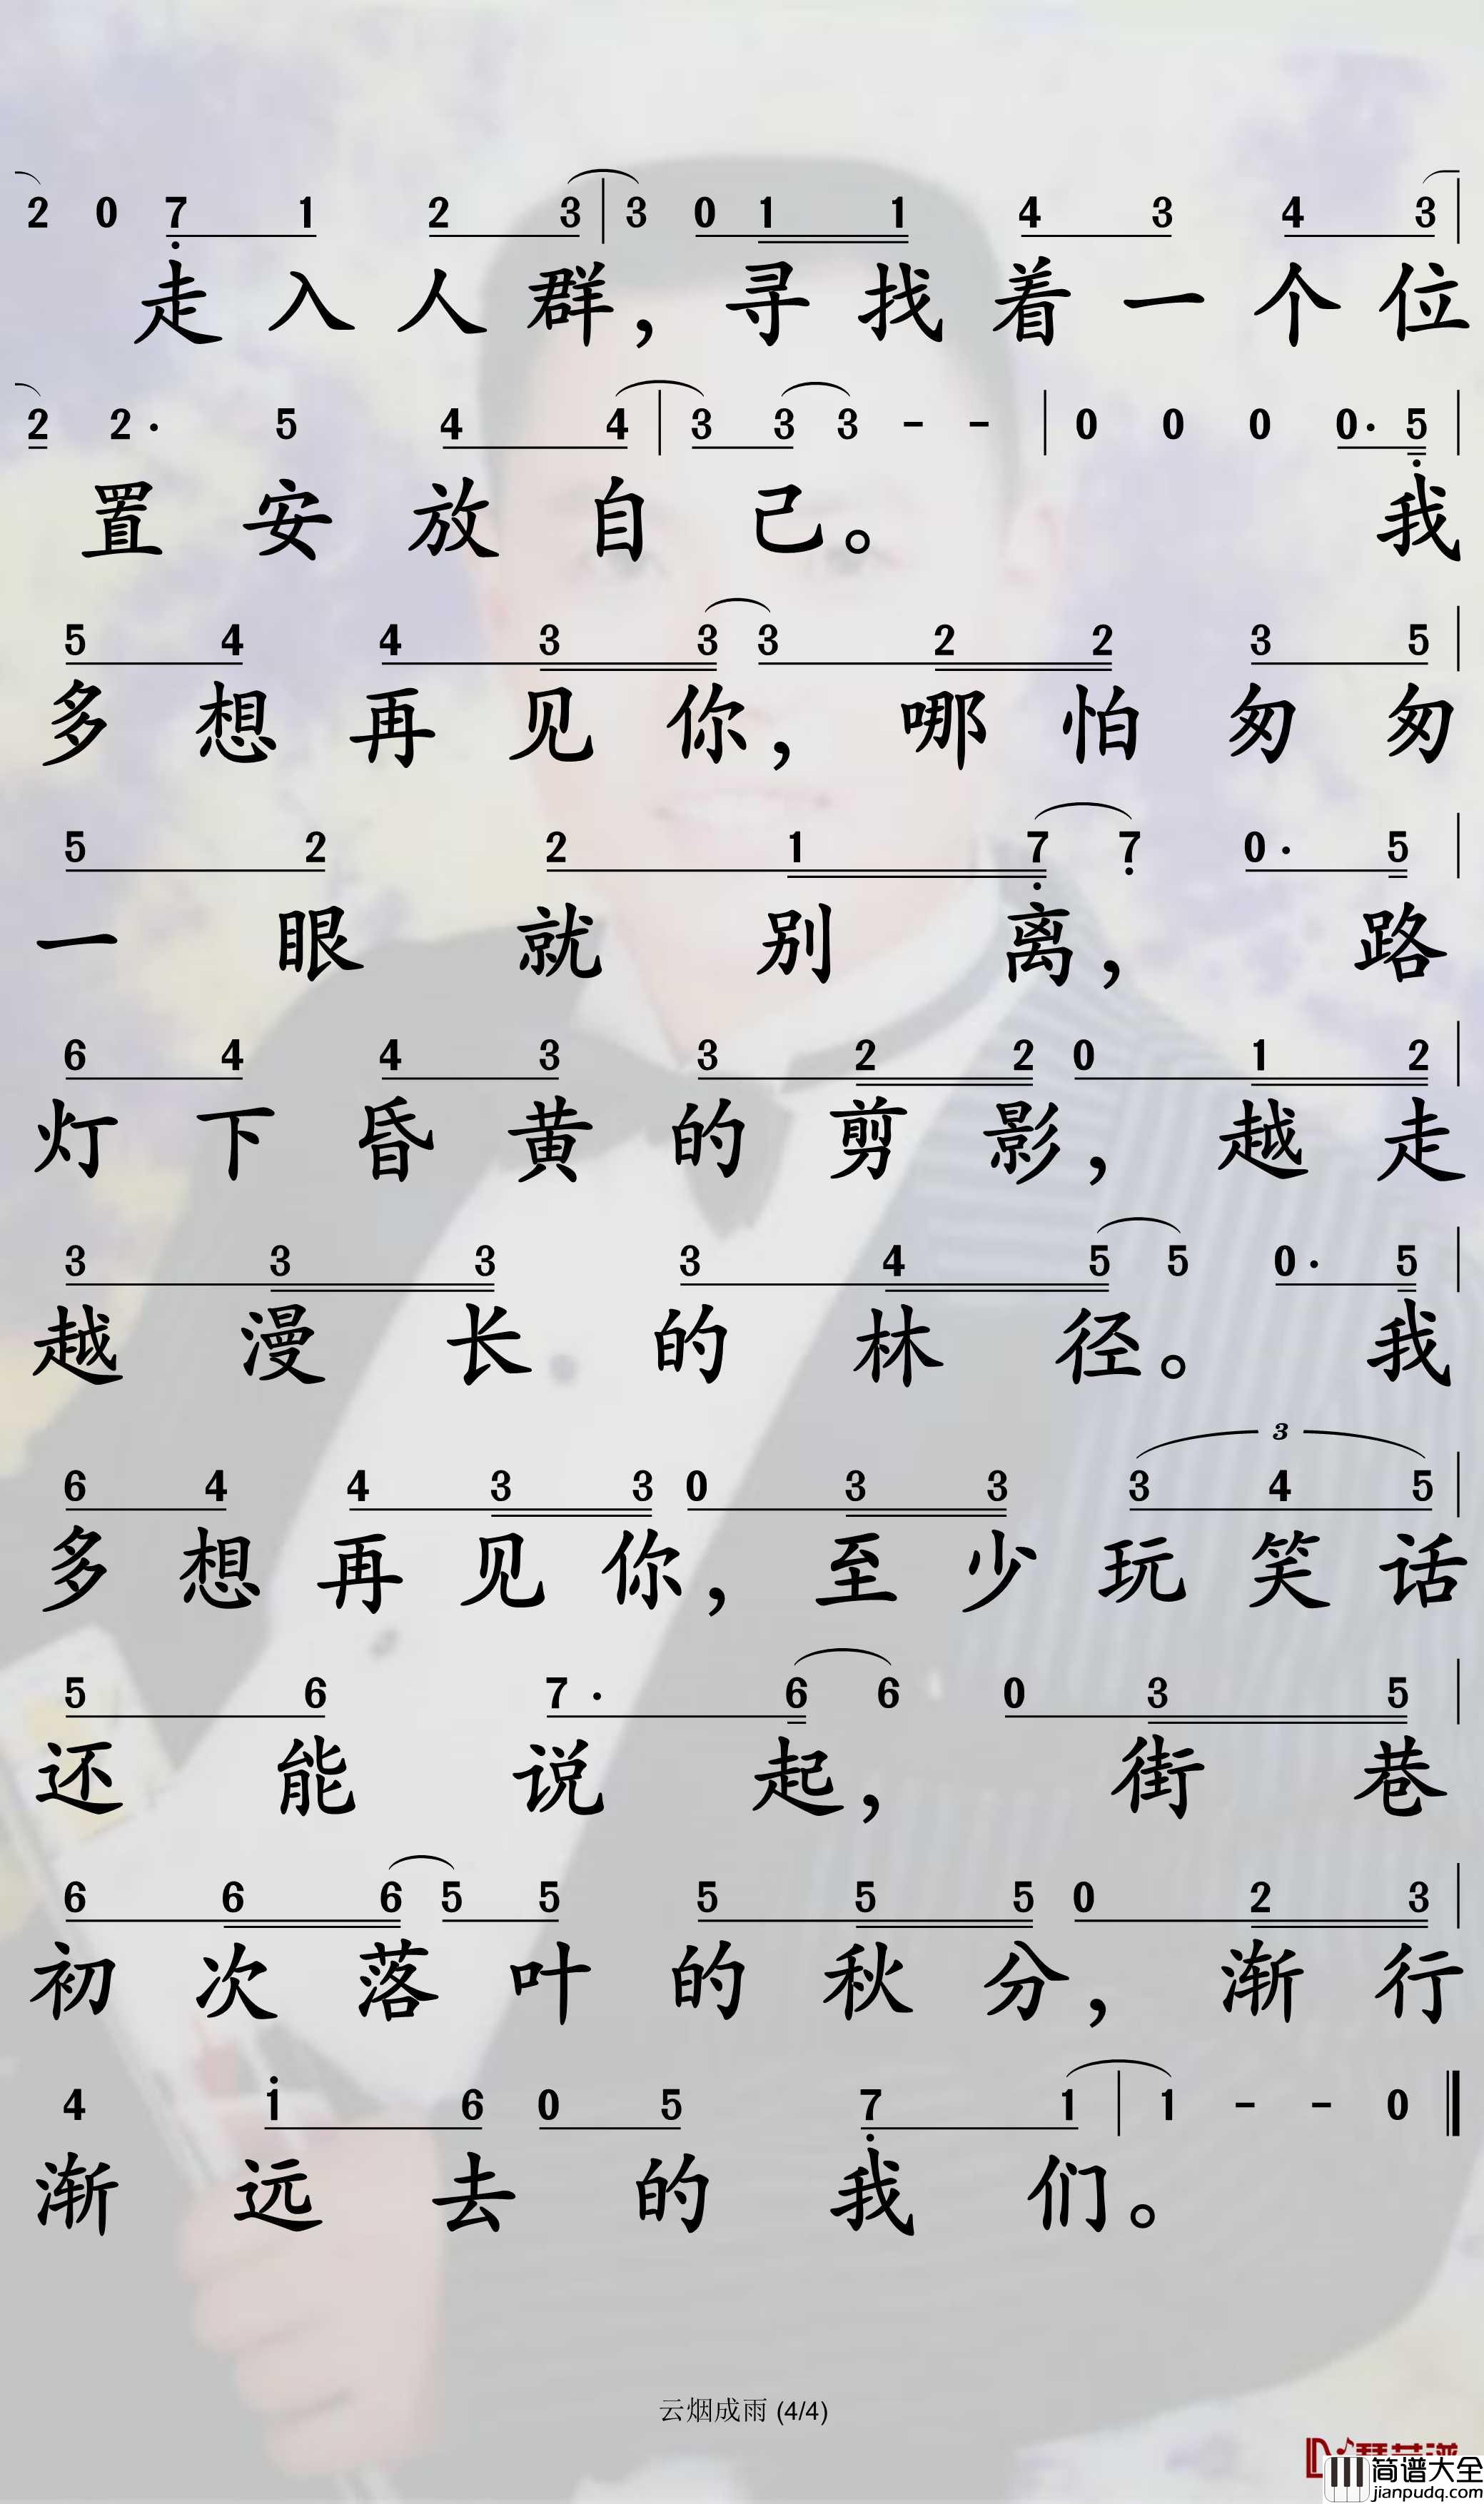 2 0 7 1 2 3 | 3 0 1 1 4 3 4 3 |
走入人群，寻找着一个位
2 2· 5 4 4 | 3 3 3 - - | 0 0 0 0· 5 |
置安放自己。我
5 4 4 3 3 3 2 2 3 5 |
多想再见你，哪怕匆匆
5 2 2 1 7 7 0· 5 |
一眼就别离，路
6 4 4 3 3 2 2 0 1 2 |
灯下昏黄的剪影，越走
3 3 3 3 4 5 5 0· 5 |
越漫长的林径。我
3
6 4 4 3 3 0 3 3 3 4 5 |
多想再见你，至少玩笑话
5 6 7· 6 6 0 3 5 |
还能说起，街巷
6 6 6 5 5 5 5 5 0 2 3 |
初次落叶的秋分，渐行
4 1 6 0 5 7 1 | 1 - - 0
渐远去的我们。
云烟成雨 (4/4)
简谱大全
jianpudq.com